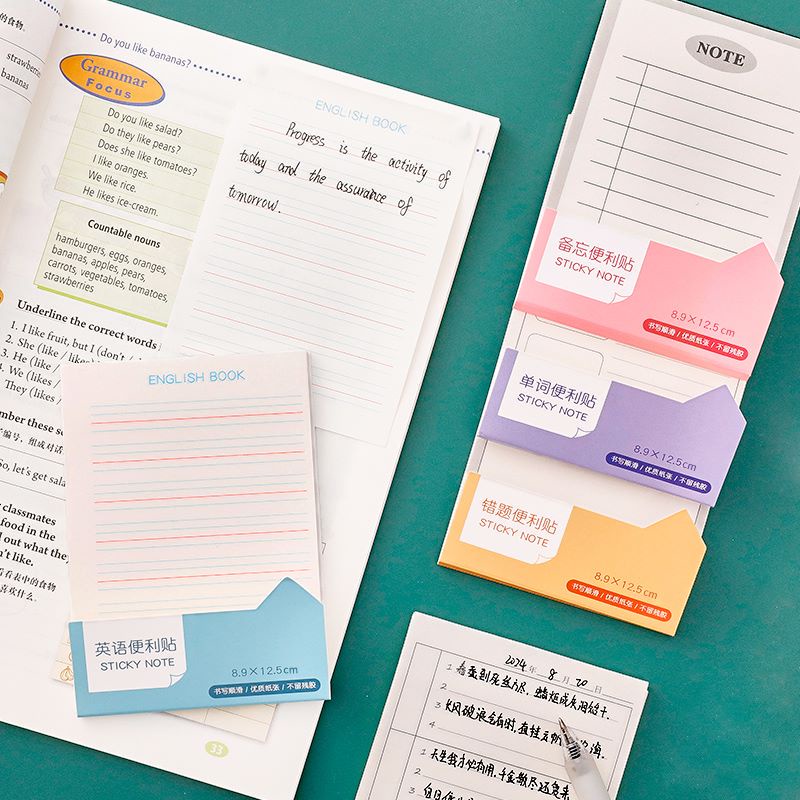 的食物.
strawberries
bananas
Do you like bananas?
Grammar
Focus
Do you like salad?
Do they like pears?
Does she like tomatoes?
I like oranges.
We like rice.
He likes ice-cream.
Countable nouns
hamburgers, eggs, oranges,
bananas, apples, pears,
carrots, vegetables, tomatoes,
strawberries
Underline the correct words
1. I like fruit, but I (don't /
2. She (like / likes)
3. He (like /
4. We (likes /
They (likes /
编号，组成对话
So, let's get sala
classmates
food in the
out what they
n't like.
写看表中的食物
喜欢什么.
33
ENGLISH BOOK
Progress is the activity of
today and the assurance of
tomorrow.
ENGLISH BOOK
英语便利贴
STICKY NOTE
8.9×12.5cm
书写顺滑 / 优质纸张 / 不留残胶
NOTE
备忘便利贴
STICKY NOTE
8.9×12.5cm
书写顺滑 / 优质纸张 / 不留残胶
单词便利贴
STICKY NOTE
8.9×12.5cm
书写顺滑 / 优质纸张 / 不留残胶
错题便利贴
STICKY NOTE
8.9×12.5cm
书写顺滑 / 优质纸张 / 不留残胶
2024年 8月 20日
1 春蚕到死丝方尽，蜡炬成灰泪始干.
2
3 长风破浪会有时，直挂云帆 海.
4
1 天生我才必有用，千金散尽还复来
2
3